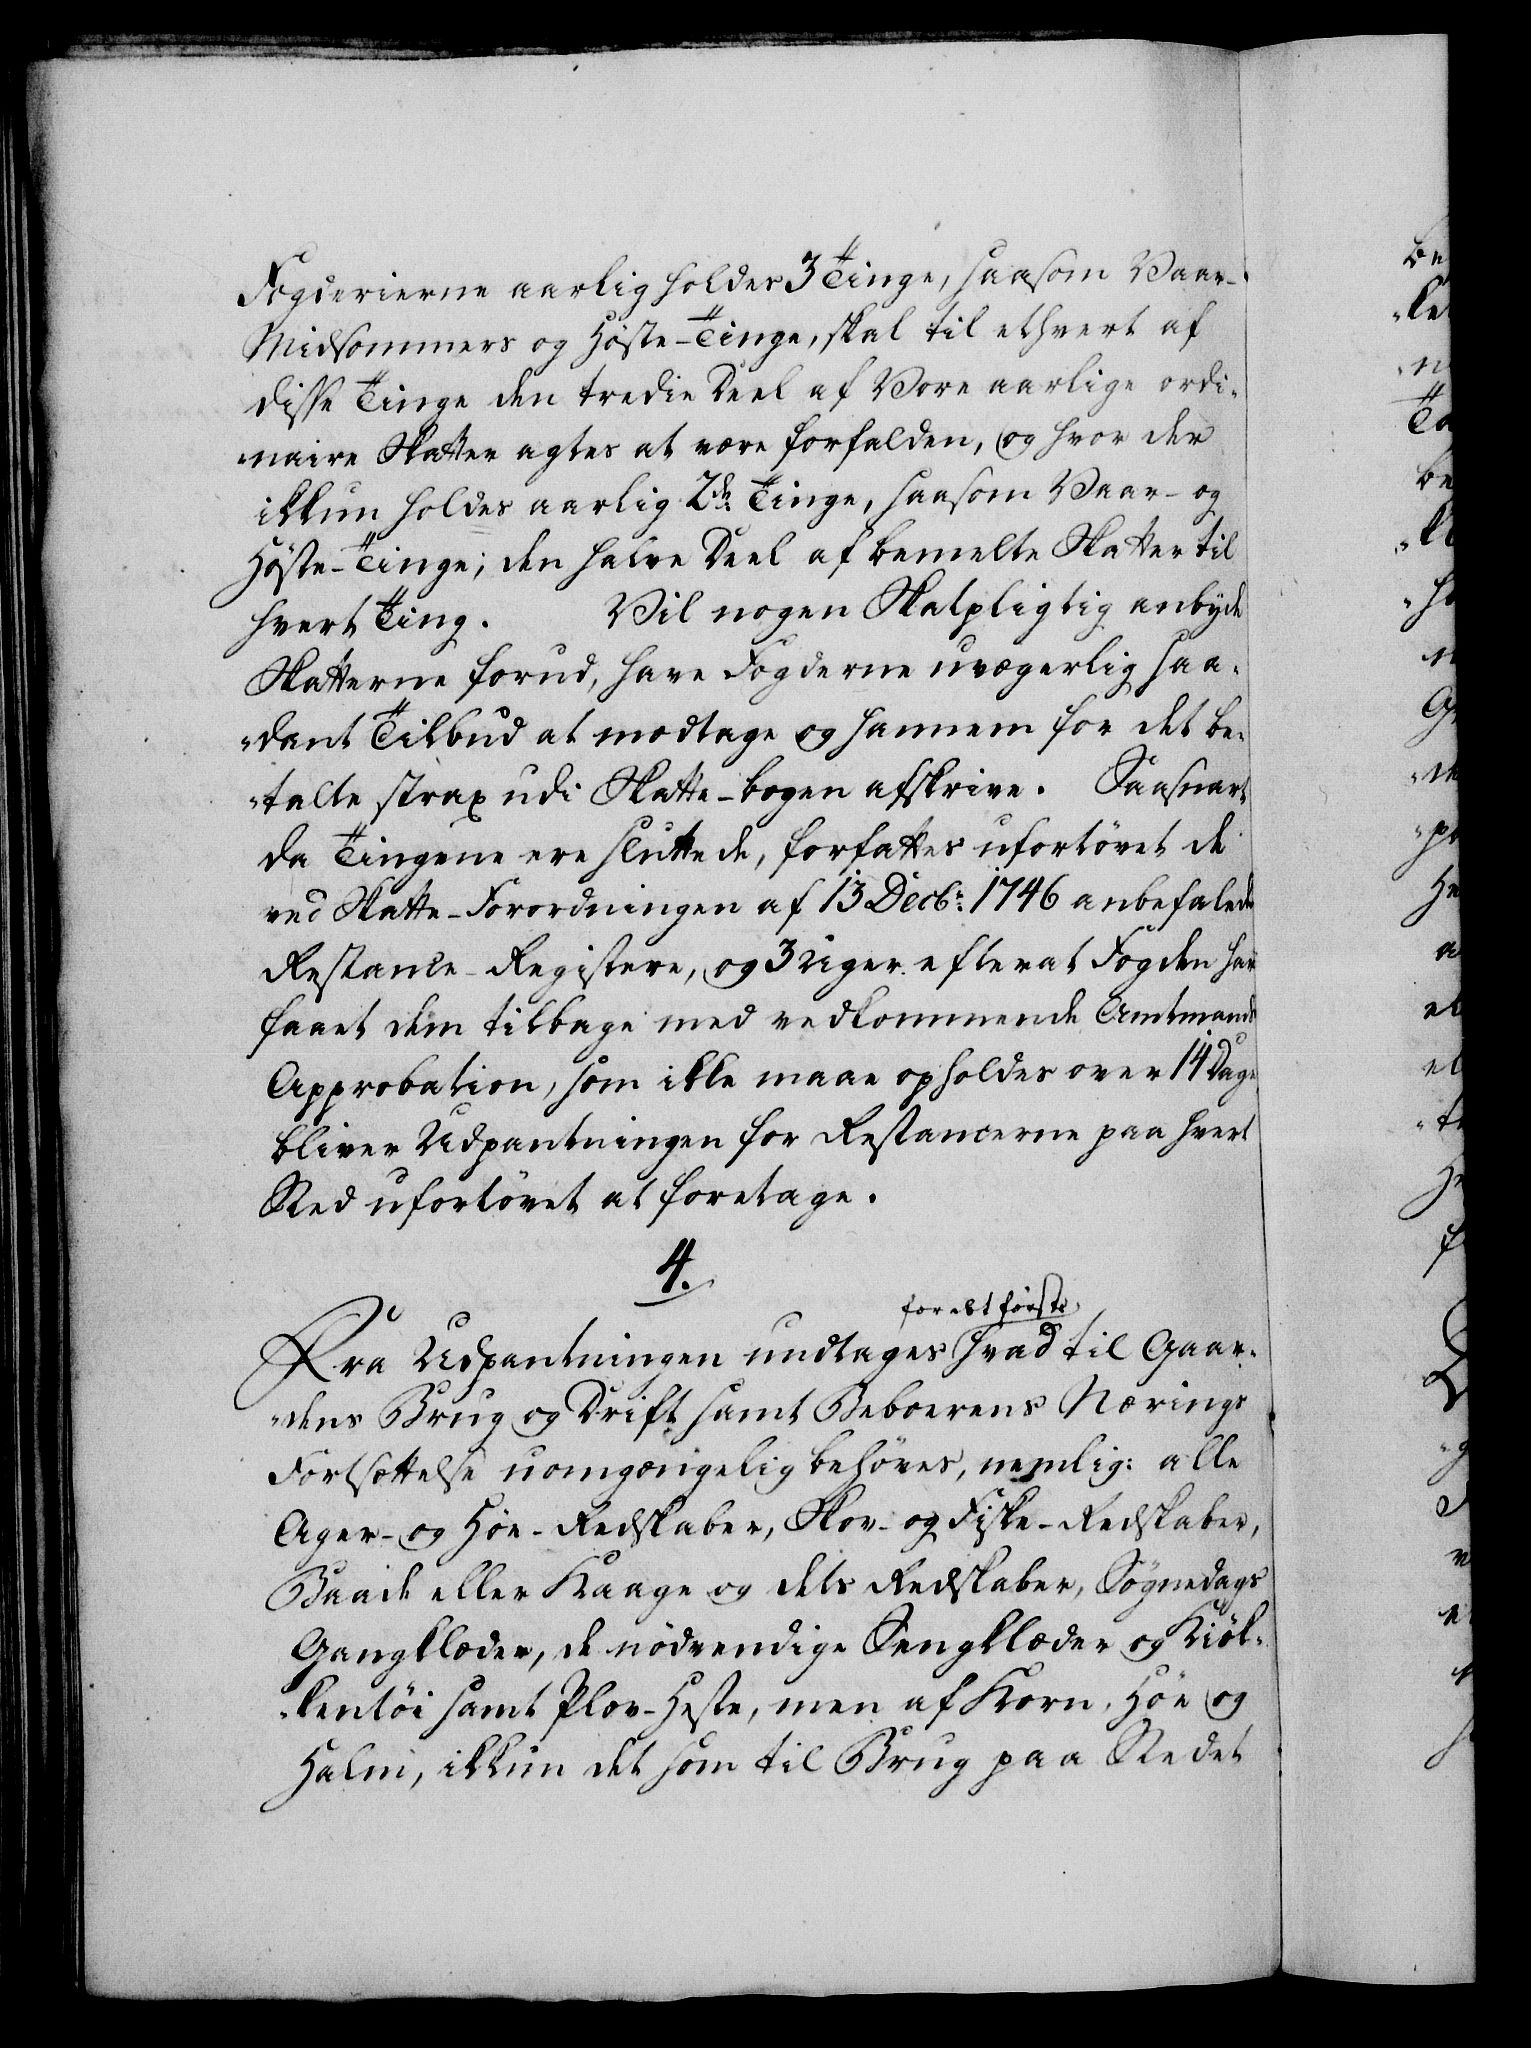 Fogderierne aarlig holdes 3 Tinge, saasom Vaar-
Midsommers og Höste-Tinge, skal til ethvert af
disse Tinge den tredie Deel af Vore aarlige ordi-
naire Skatter agtes at være forfalden, og hvor der
ikkun holdes aarlig 2de Tinge, saasom Vaar- og
Höste-Tinge; den halve Deel af bemelte Skatter til
hvert Ting. Vil nogen Skatpligtig anbyde
Skatterne forud, have Fogderne uvægerlig saa-
dant Tilbud at modtage og hannem for det be-
talte strax udi Skatte-bogen afskrive. Saasnart
da Tingene ere sluttede, forfattes ufortövet de
ved Skatte-Forordningen af 13 Decbr: 1746 anbefalede
Restance-Registere, og 3 Uger efterat Fogden har
faaet dem tilbage med vedkommende Amtmands
Approbation, som ikke maae opholdes over 14 Dage
bliver Udpantningen for Restancerne paa hvert
Sted ufortövet at foretage.
4.
for det förste
Fra Udpantningen undtages hvad til Gaar-
dens Brug og Drift samt Beboerens Nærings
Fortsættelse uomgængelig behöves, nemlig: alle
Ager- og Höe-Redskaber, Skov- og Fiske-Redskaber,
Baade eller Kaage og dets Redskaber, Sögnedags
Gangklæder, de nödvendige Sengklæder og Kiök-
kentöi samt Plov-Heste, men af Korn, Höe og
Halm, ikkun det som til Brug paa Stedet